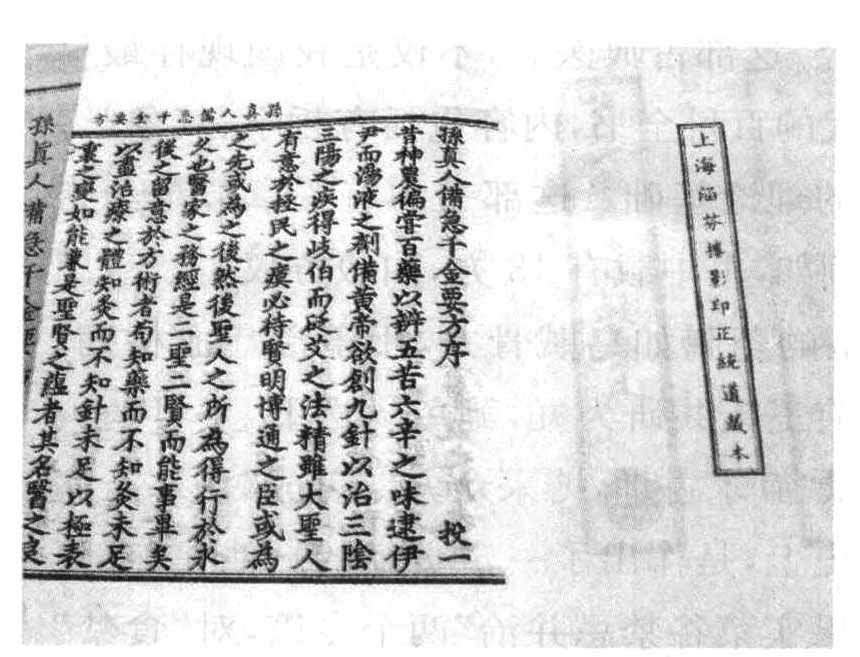 上海涵芬樓影印正統道藏本
孫真人備急千金要方
孫真人備急千金要方序
投一
昔神農徧嘗百藥以辨五苦六辛之味逮伊
尹而湯液之劑備黃帝欲創九針以治三陰
三陽之疾得岐伯而砭艾之法精雖大聖人
有意於拯民之瘼必待賢明博通之臣或為
之先或為之後然後聖人之所為得行於永
久也醫家之務經是二聖二賢而能事畢矣
後之留意於方術者苟知藥而不知灸未足
以盡治療之體知灸而不知針未足以極表
裏之變如能兼是聖賢之蘊者其名醫之良
孫真人備急千金